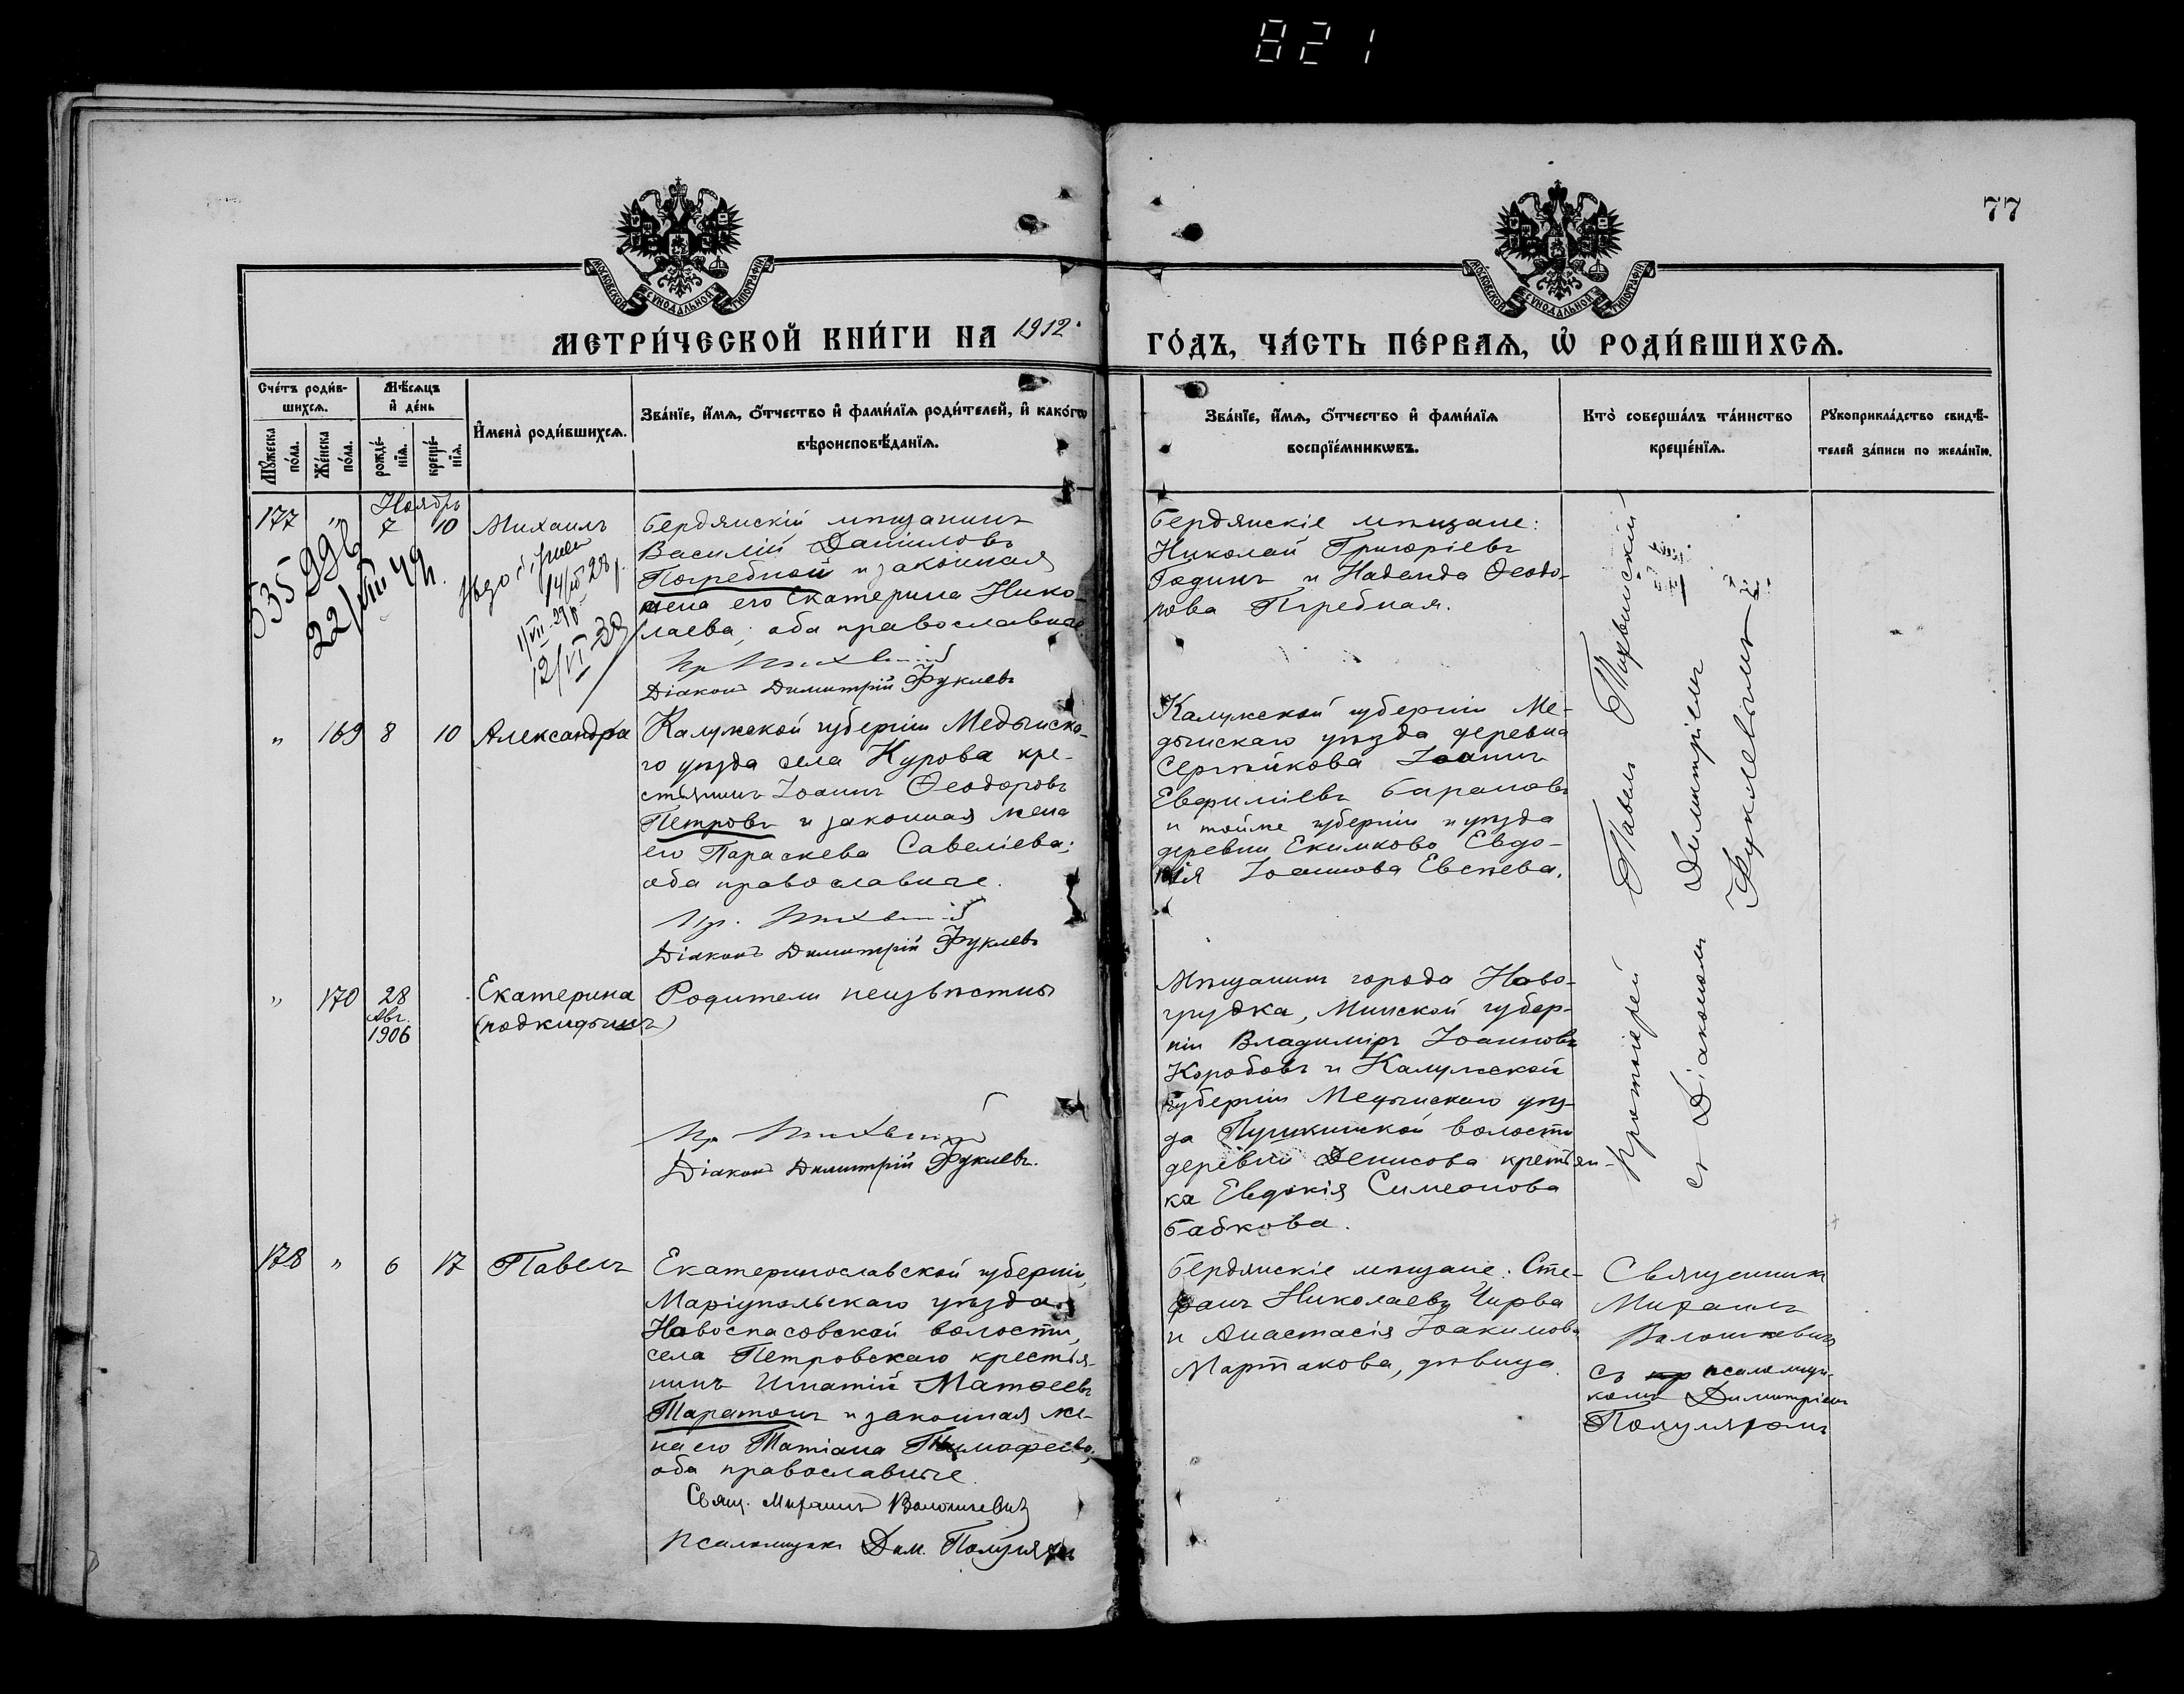 821
77
МОСКОВСКОЙ СѴНОДАЛЬНОЙ ТИПОГРАФІИ
МОСКОВСКОЙ СѴНОДАЛЬНОЙ ТИПОГРАФІИ
МЕТРИ́ЧЕСКОЙ КНИ́ГИ НА 1912
ГО́ДЪ, ЧА́СТЬ ПЕ́РВАЯ, Ѽ РОДИ́ВШИХСЯ.
Сче́тъ роди́в-
шихся.
Мѣ́сяцъ
и де́нь
Мꙋ́жеска по́ла.
Же́нска по́ла.
рожде́-
нїя.
креще́-
нїя.
Имена̀ роди́вшихся.
Зва́нїе, и́мя, ѻ́тчество и фами́лїя роди́телей, и како́гѡ
вѣроисповѣ́данїя.
Зва́нїе, и́мя, ѻ́тчество и фами́лїя
воспрїе́мникѡвъ.
Кто̀ соверша́лъ та́инство
креще́нїя.
Рꙋкоприкла́дство свидѣ́-
телей за́писи по жела́нїю.
Ноябрь
177 „ 7 10 Михаилъ
535996
22/VIII 49 г.
14/III 28 г.
1/VII-29 г
12/VI-39
Бердянскій мѣщанинъ
Василій Даніиловъ
Погребной и законная
жена его Екатерина Нико-
лаева; оба православные
Діаконъ Димитрій Фуклевъ
Бердянскіе мѣщане:
Николай Григоріевъ
Годинъ и Надежда Ѳеодо-
рова Погребная.
„ 169 8 10 Александра
Калужской губерніи Медынска-
го уѣзда села Курова кре-
стьянинъ Іоаннъ Ѳеодоровъ
Петровъ и законная жена
его Параскева Савеліева;
оба православные.
Пр. Тихвинскій
Діаконъ Димитрій Фуклевъ
Калужской губерніи Ме-
дынскаго уѣзда деревни
Іоаннъ
Евфиміевъ Барановъ
и тойже губерніи и уѣзда
деревни Екимково Евдо-
кія Іоаннова
Протоіерей Павелъ Тихвинскій
съ Діакономъ Димитріемъ
Фуклевымъ
„ 170 28
Авг.
1906
Екатерина
(подкидышъ)
Родители неизвѣстны
Діаконъ Димитрій Фуклевъ.
Мѣщанинъ города Ново-
грудка, Минской губер-
ніи Владиміръ Іоанновъ
Коробовъ и Калужской
губерніи Медынскаго уѣз-
да Пушкинской волости
деревни Денисова крестьян-
ка Евдокія Симеонова
Бабкова.
178 „ 6 17 Павелъ
Екатеринославской губерніи,
Маріупольскаго уѣзда
Новоспасовской волости,
села Петровскаго крестья-
нинъ Игнатій Матѳеевъ
Таратонъ и законная же-
на его Татіана Тимофеева,
оба православные.
Свящ. Михаилъ Волошкевичъ
Псаломщикъ Дим. Полуляхъ
Бердянскіе мѣщане: Сте-
фанъ Николаевъ Чирва
и Анастасія Іоакимова
Мартакова, дѣвица.
Священникъ
Михаилъ
Волошкевичъ
съ псаломщи-
комъ Димитріемъ
Полуляхомъ